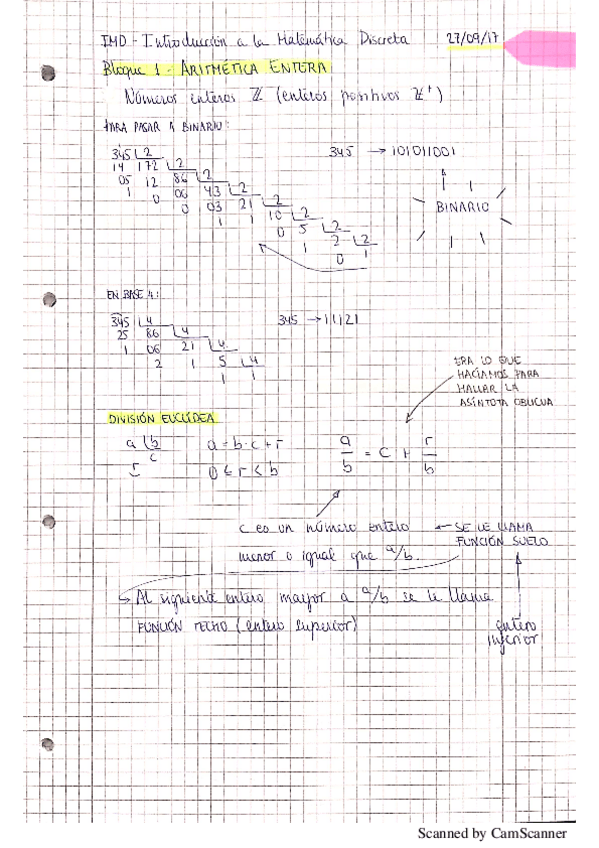 IMD - Introducción a la Matemática Discreta 27/09/17
Bloque 1 - ARITMÉTICA ENTERA
Números enteros ℤ (enteros positivos ℤ⁺)
PARA PASAR A BINARIO:
345 | 2
14 172 | 2
05 12 86 | 2
1 0 06 43 | 2
0 03 21 | 2
1 1 10 | 2
0 5 | 2
1 2 | 2
0 1
345 → 101011001
BINARIO
EN BASE 4:
345 | 4
25 86 | 4
1 06 21 | 4
2 1 5 | 4
1 1
345 → 11121
ERA LO QUE
HACÍAMOS PARA
HALLAR LA
ASÍNTOTA OBLICUA
DIVISIÓN EUCLÍDEA
a | b
r c
a = b·c + r
0 ≤ r < b
a/b = c + r/b
c es un número entero
menor o igual que a/b.
← SE LE LLAMA
FUNCIÓN SUELO
entero
inferior
↳ Al siguiente entero mayor a a/b se le llama
FUNCIÓN TECHO (entero superior)
Scanned by CamScanner